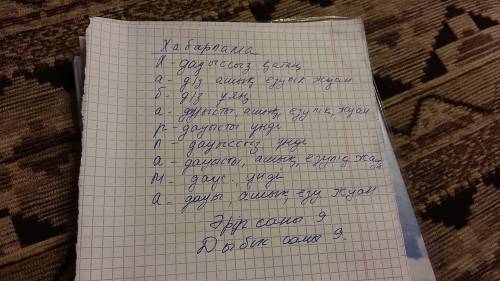 Хабарлама
Х - дауыссыз қатаң
а - д/з ашық езулік жуан
б - д/з ұяң
а - дауысты, ашық, езулік, жуан
р - дауысты үнді
л - дауыссыз, үнді
а - дауысты, ашық, езулік жуан
м - дауыс, үнді
а - дауы, ашық, езу жуан
Әріп саны 9
Дыбыс саны 9.